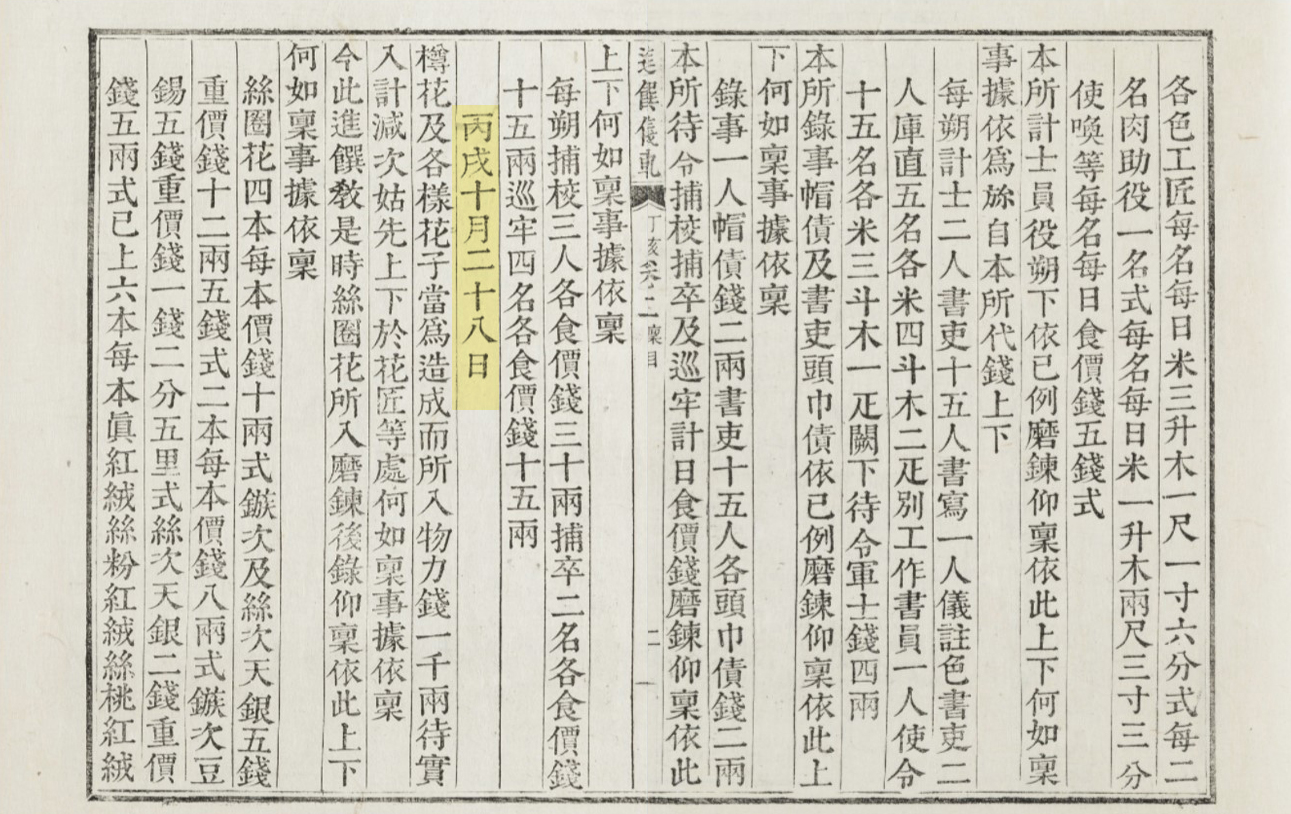 各色工匠每名每日米三升木一尺一寸六分式每二
名肉助役一名式每名每日米一升木兩尺三寸三分
使喚等每名每日食價錢五錢式
本所計士員役朔下依已例磨鍊仰稟依此上下何如稟
事據依爲旀自本所代錢上下
每朔計士二人書吏十五人書寫一人儀註色書吏二
人庫直五名各米四斗木二疋別工作書員一人使令
十五名各米三斗木一疋闕下待令軍士錢四兩
本所錄事帽債及書吏頭巾債依已例磨鍊仰稟依此上
下何如稟事據依稟
錄事一人帽債錢二兩書吏十五人各頭巾債錢二兩
本所待令捕校捕卒及巡牢計日食價錢磨鍊仰稟依此
進饌儀軌 丁亥 卷二 稟目 二一
上下何如稟事據依稟
每朔捕校三人各食價錢三十兩捕卒二名各食價錢
十五兩巡牢四名各食價錢十五兩
丙戌十月二十八日
樽花及各樣花子當爲造成而所入物力錢一千兩待實
入計減次姑先上下於花匠等處何如稟事據依稟
今此進饌敎是時絲圈花所入磨鍊後錄仰稟依此上下
何如稟事據依稟
絲圈花四本每本價錢十兩式鏃次及絲次天銀五錢
重價錢十二兩五錢式二本每本價錢八兩式鏃次豆
錫五錢重價錢一錢二分五里式絲次天銀二錢重價
錢五兩式已上六本每本眞紅絨絲粉紅絨絲桃紅絨